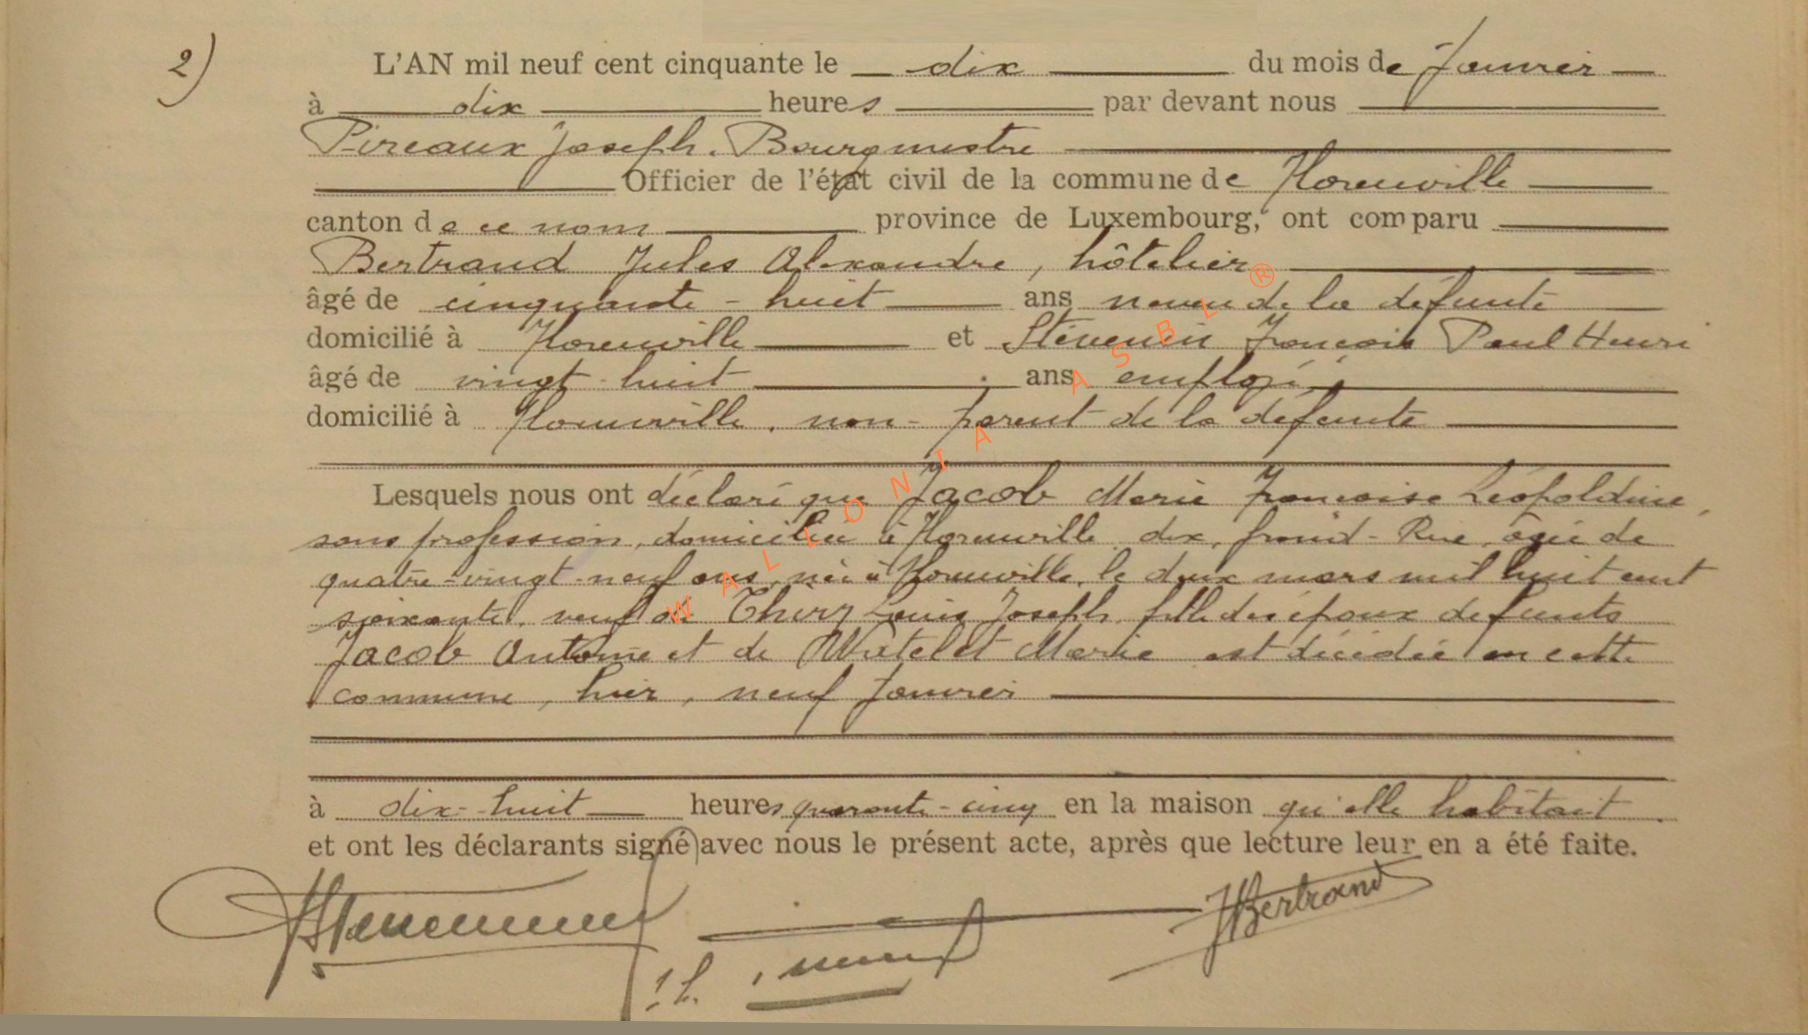 2) L'AN mil neuf cent cinquante le dix du mois de Janvier
à dix heures par devant nous
Pireaux Joseph. Bourgmestre
Officier de l'état civil de la commune de Florenville
canton de ce nom province de Luxembourg, ont comparu
Bertrand Jules Alexandre, hôtelier
âgé de cinquante-huit ans neveu de la défunte
domicilié à Florenville et Stévenin François Paul Henri
âgé de vingt-huit ans employé,
domicilié à Florenville, non-parent de la défunte
Lesquels nous ont déclaré que Jacob Marie Françoise Léopoldine,
sans profession, domiciliée à Florenville, dix, froid-Rue, âgée de
quatre-vingt-neuf ans, née à Florenville, le deux mars mil huit cent
soixante, veuve de Thiry Louis Joseph, fille des époux défunts
Jacob Antoine et de Watelet Marie est décédée en cette
commune, hier, neuf Janvier
à dix-huit heures quarante-cinq en la maison qu'elle habitait.
et ont les déclarants signé avec nous le présent acte, après que lecture leur en a été faite.
JBertrand
WALLONIA ASBL®